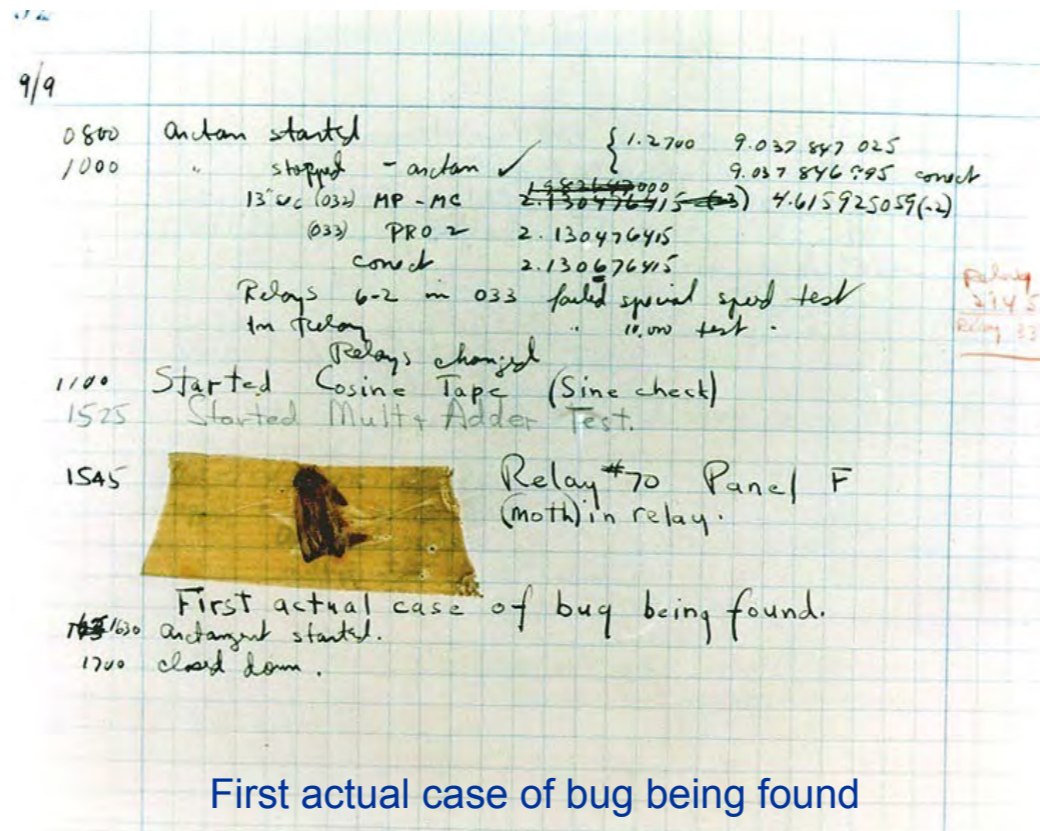 9/9
0800 arctan started { 1.2700 9.037 847 025
1000 " stopped - arctan ✓ 9.037 846 995 conect
13"uc (032) MP - MC 2.130476415 (-3) 4.615925059(-2)
(033) PRO 2 2.130476415
conect 2.130676415
Relays 6-2 in 033 failed special speed test
In Relay " 10.000 test .
Relays changed
Relay
2145
Relay 33
1100 Started Cosine Tape (Sine check)
1525 Started Mult + Adder Test.
1545 Relay #70 Panel F
(moth) in relay.
First actual case of bug being found.
1630 arctangent started.
1700 closed down.
First actual case of bug being found